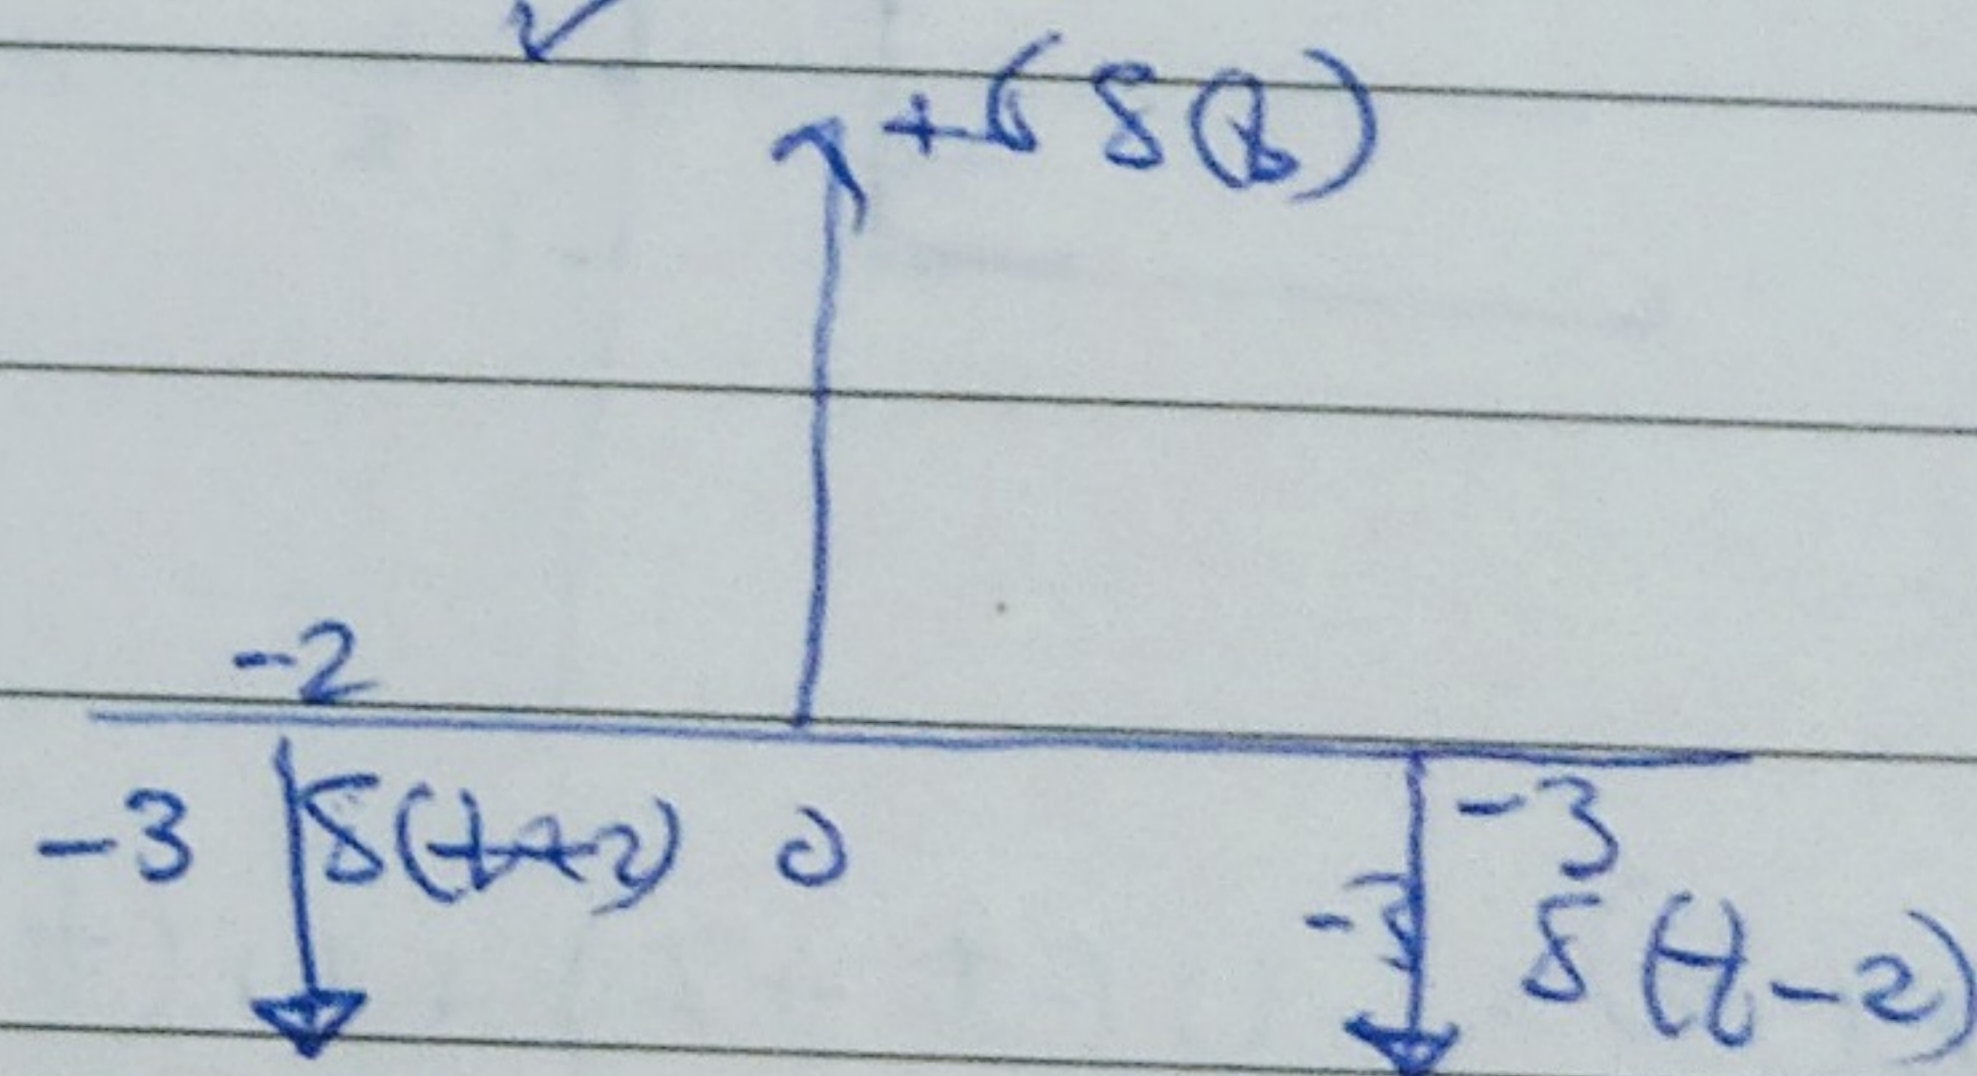 +6 δ(t)
-2
-3 δ(t+2) 0 -3
-3 δ(t-2)